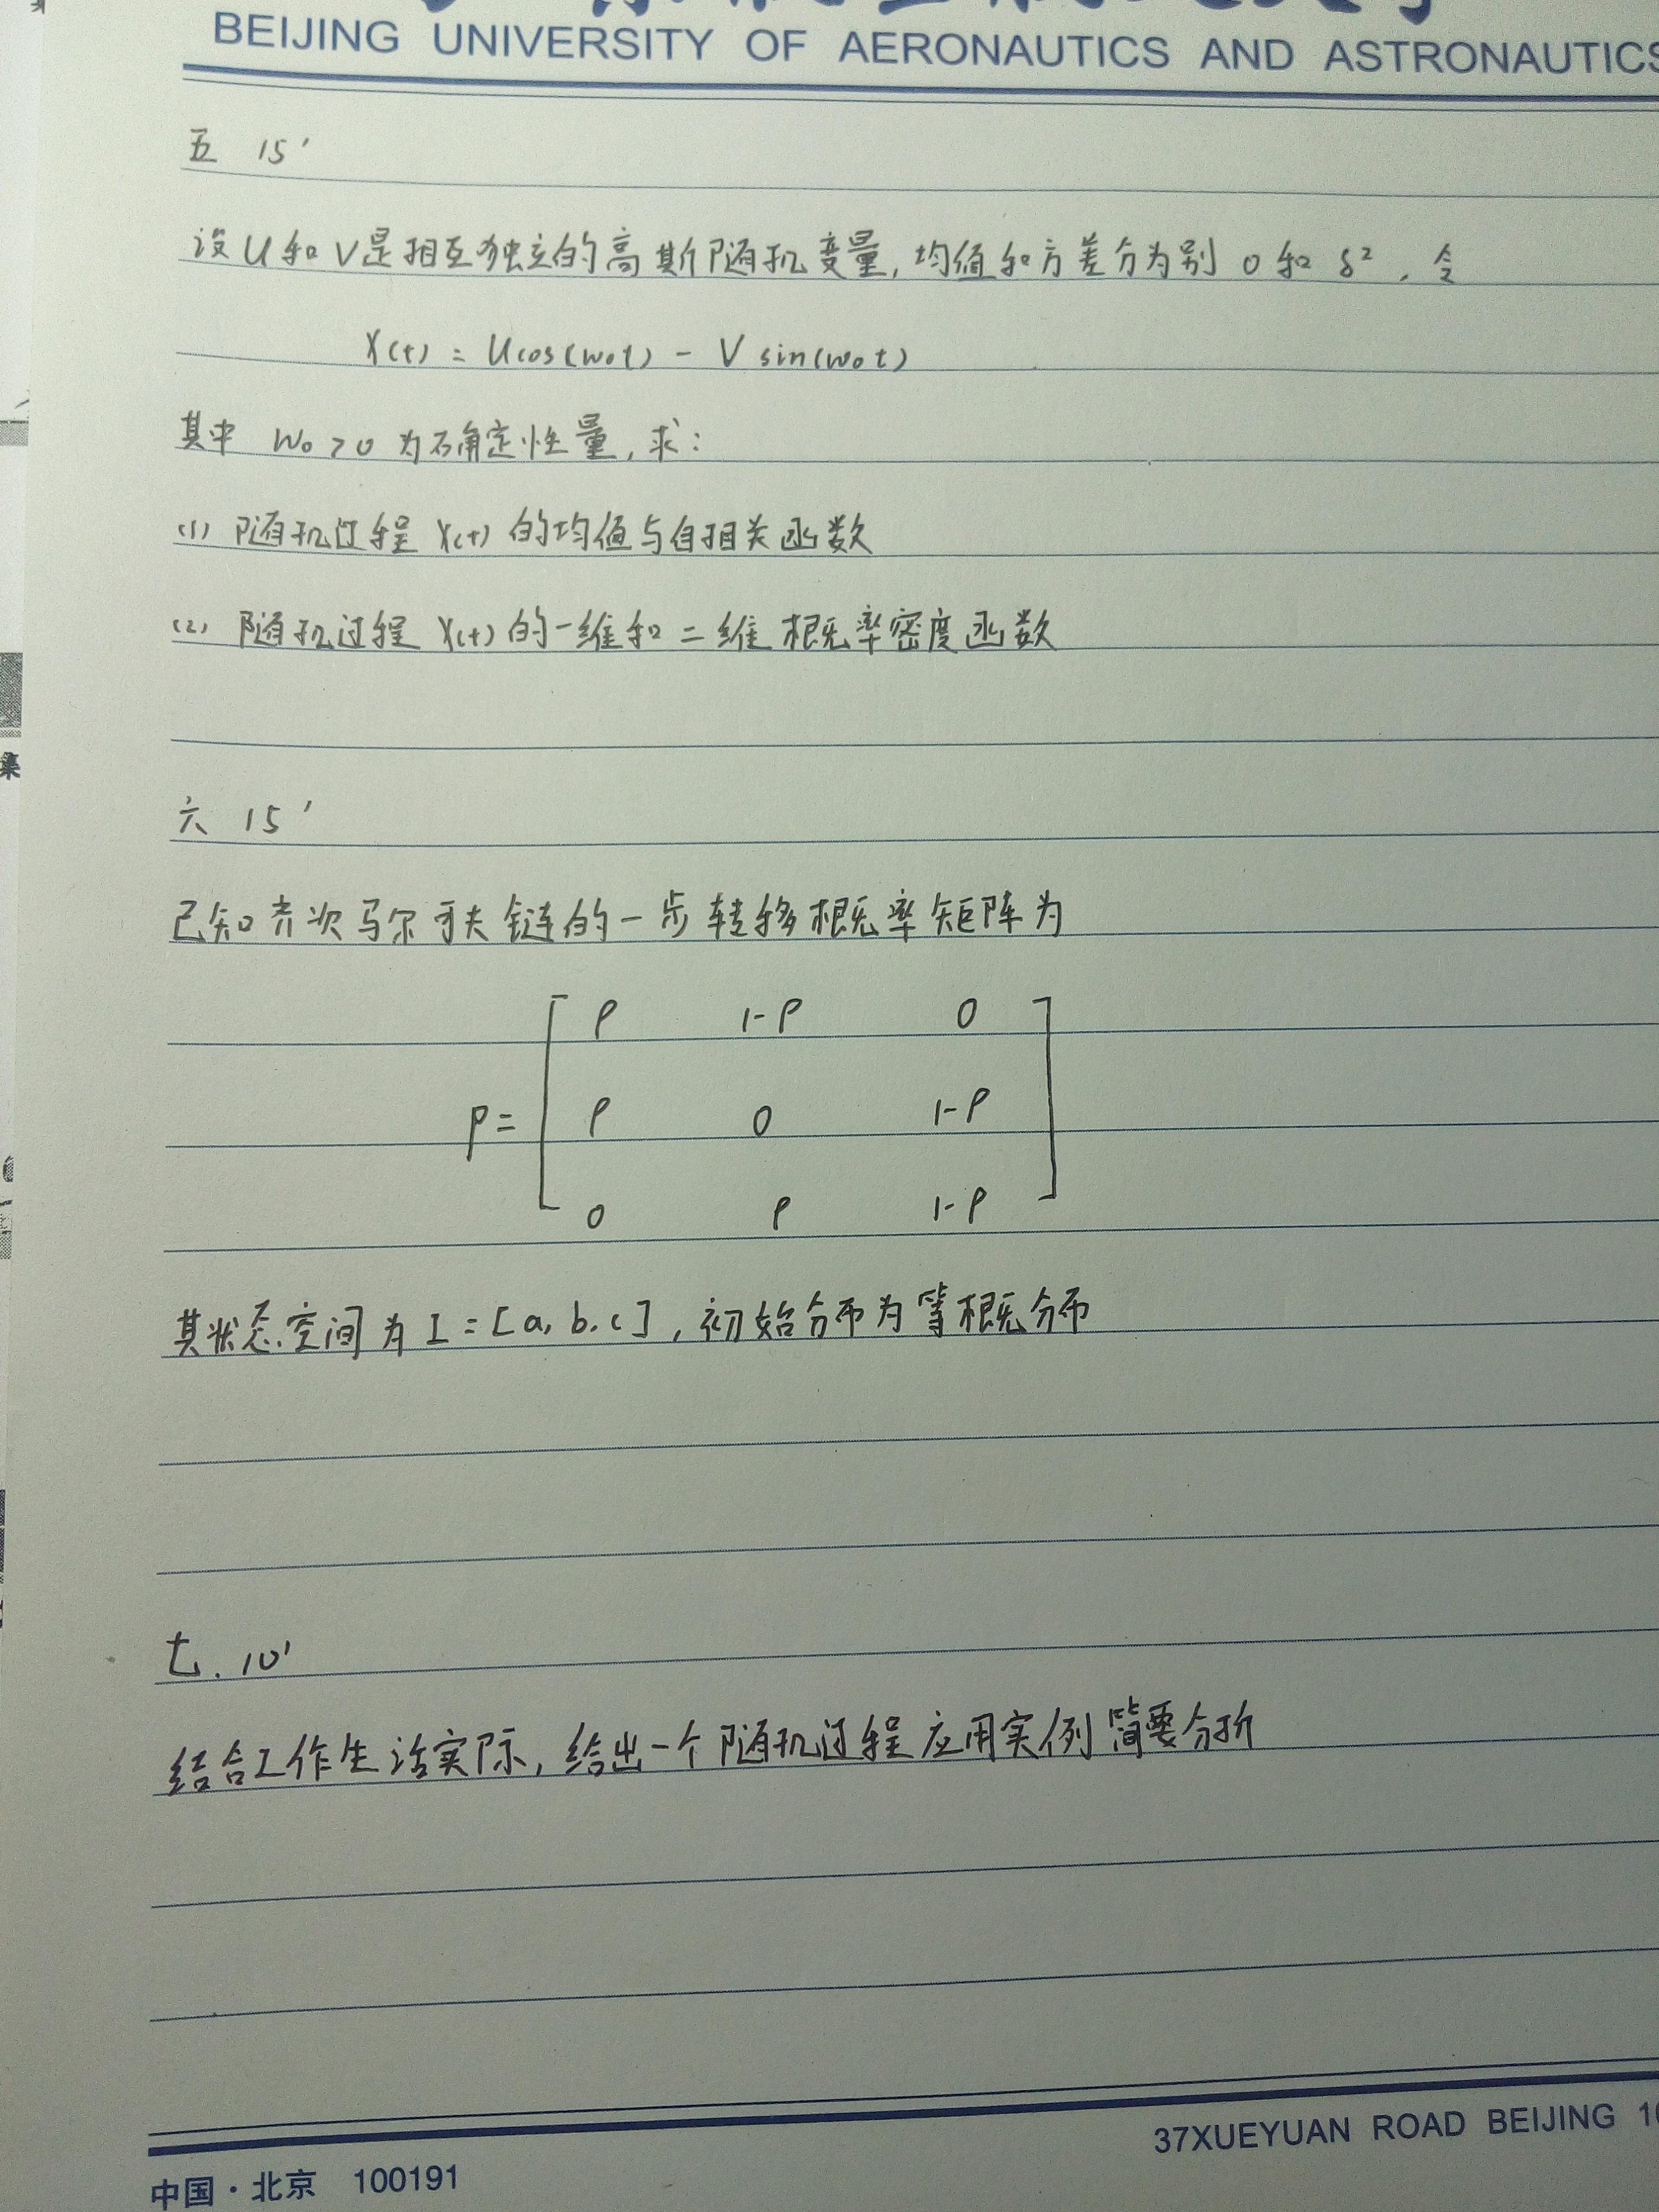 BEIJING UNIVERSITY OF AERONAUTICS AND ASTRONAUTICS
五 15'
设U和V是相互独立的高斯随机变量,均值和方差分为别 0 和 δ², 令
X(t) = Ucos(w₀t) - V sin(w₀t)
其中 w₀>0 为石角定性量,求:
(1) 随机过程 X(t) 的均值与自相关函数
(2) 随机过程 X(t) 的一维和二维概率密度函数
集
六 15'
已知齐次马尔可夫链的一步转移概率矩阵为
P 1-P 0
P= P 0 1-P
0 P 1-P
其状态空间为 I = [a, b, c], 初始分布为等概分布
七. 10'
结合工作生活实际, 给出一个随机过程应用实例简要分析
37XUEYUAN ROAD BEIJING
中国·北京 100191